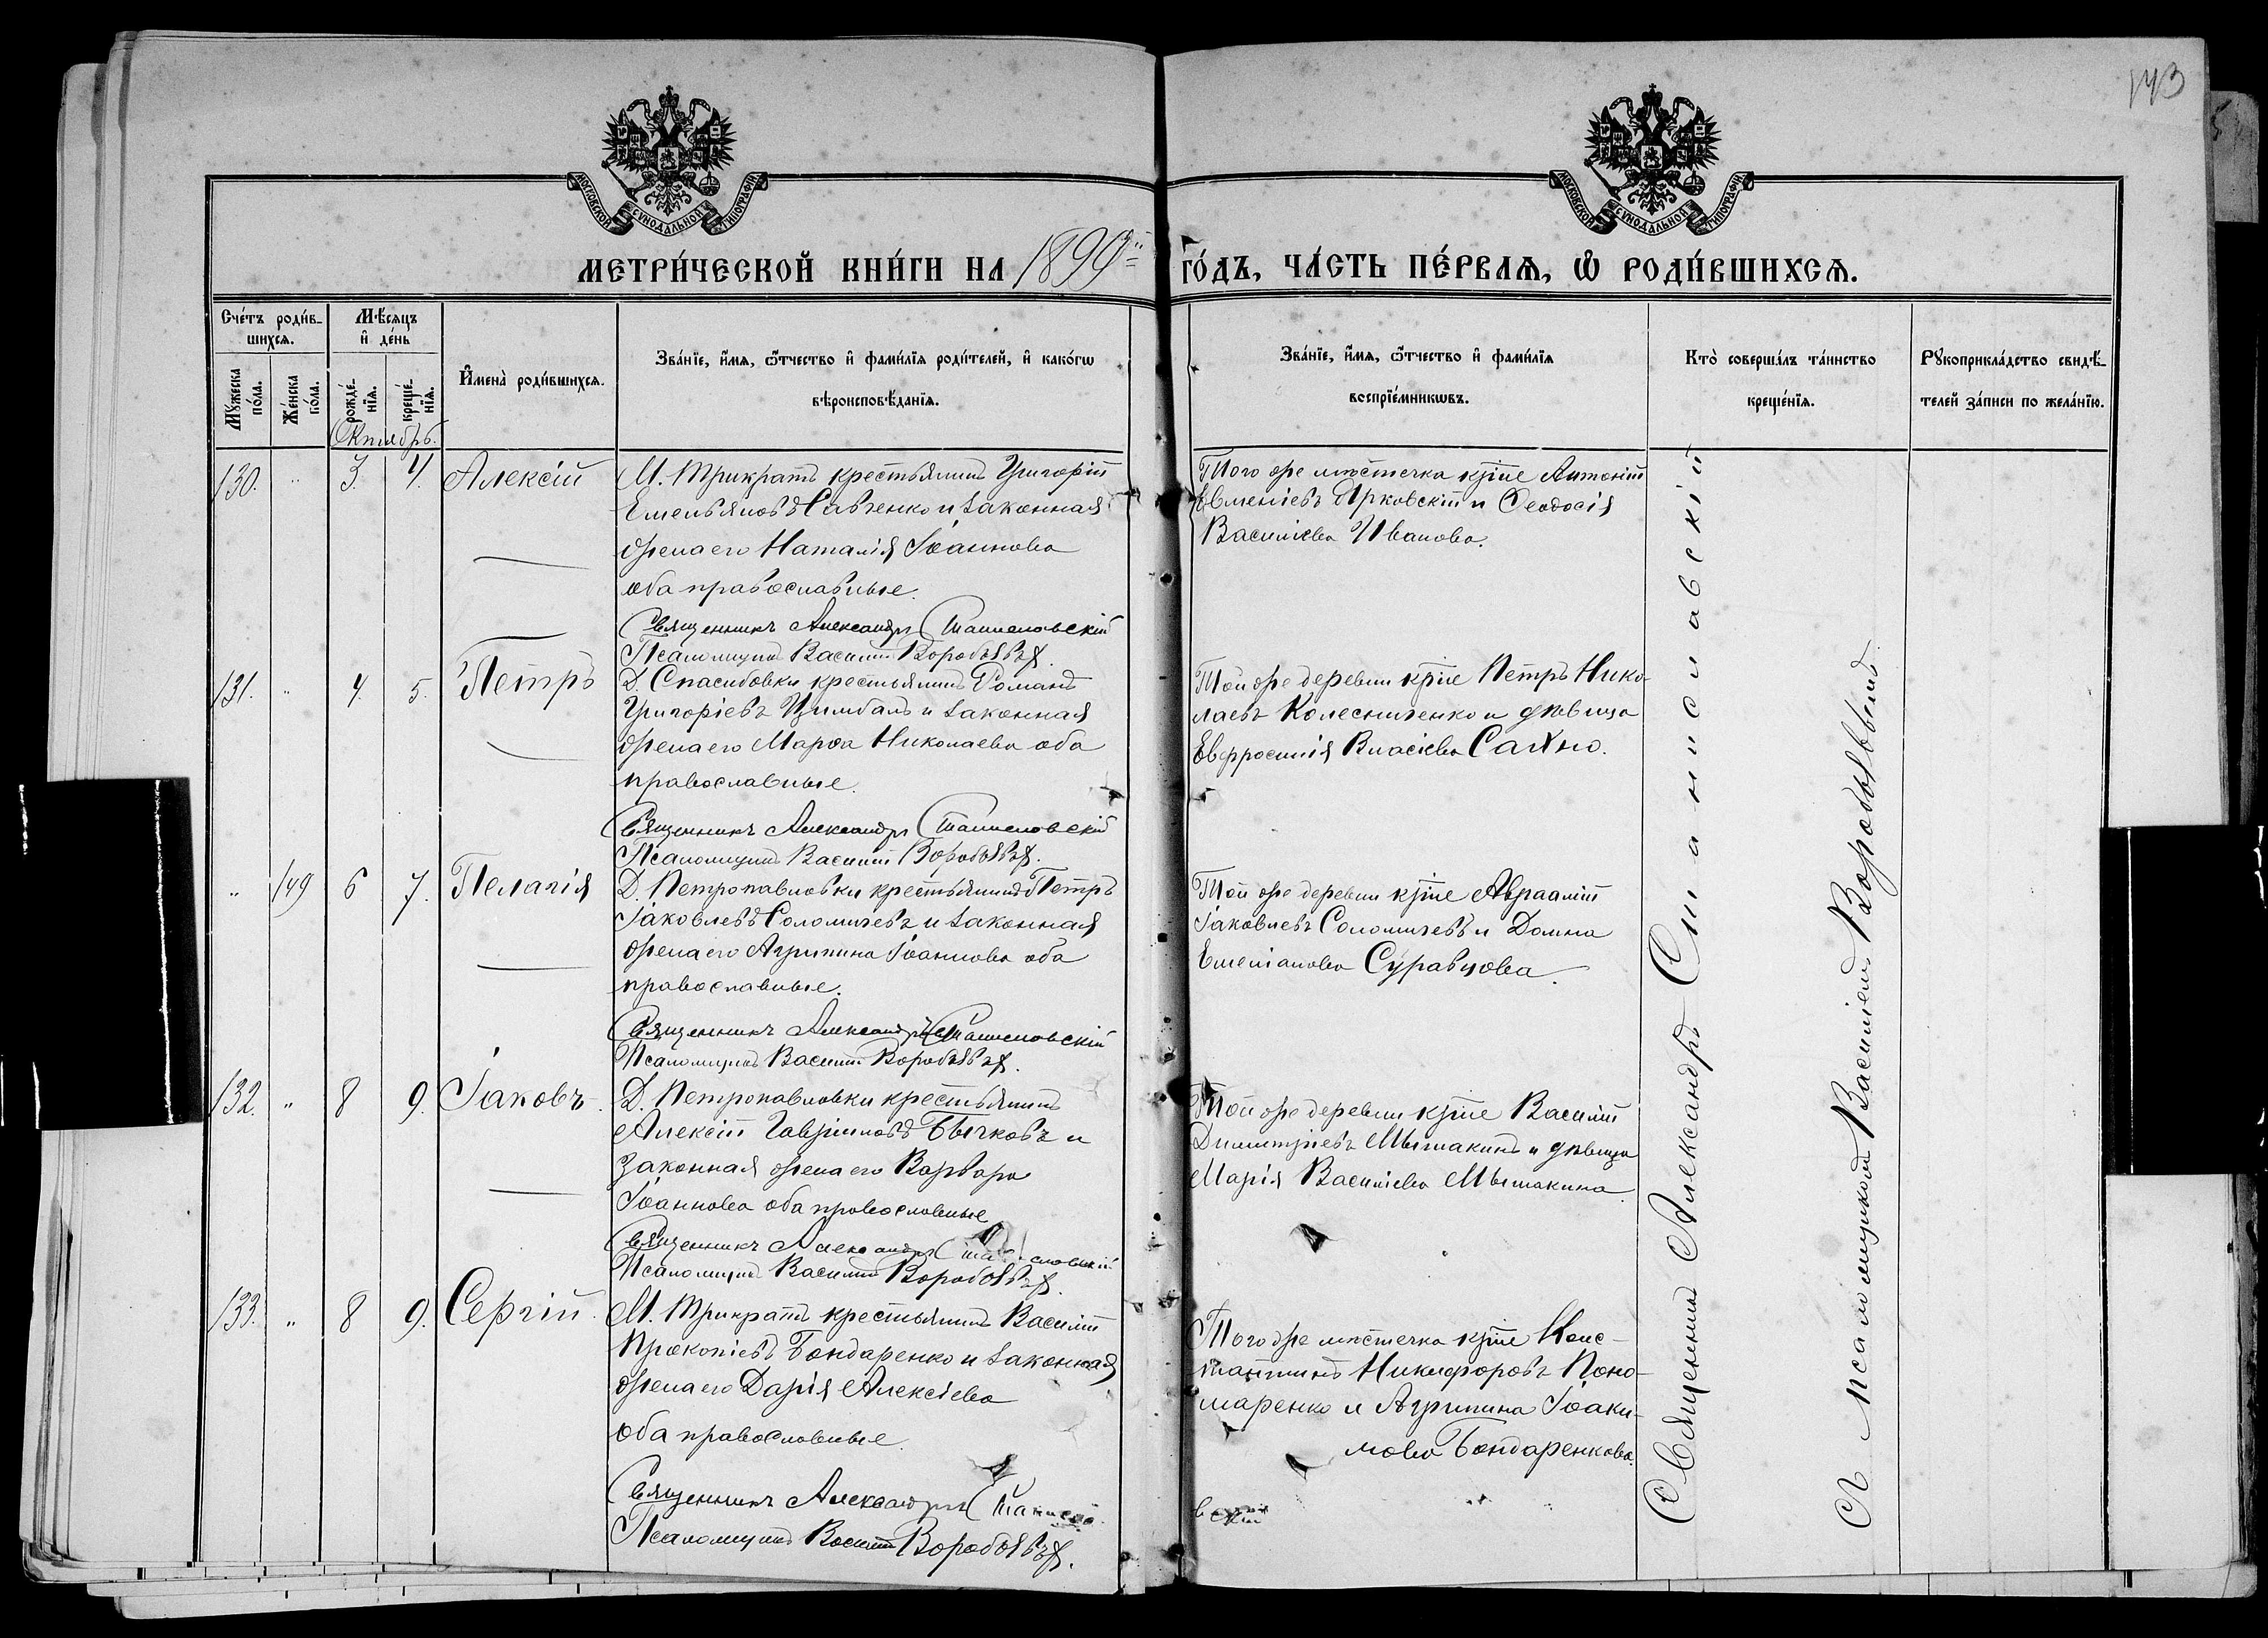 143
МОСКОВСКОЙ СУНОДАЛЬНОЙ ТИПОГРАФІИ
МОСКОВСКОЙ СУНОДАЛЬНОЙ ТИПОГРАФІИ
МЕТРИ́ЧЕСКОЙ КНИ́ГИ НА 1899й ГО́ДЪ, ЧА́СТЬ ПЕ́РВАѦ, Ѡ РОДИ́ВШИХСѦ.
Сче́тъ роди́в-
шихсѧ.
Мꙋ́жеска по́ла.
Же́нска по́ла.
Мѣ́сѧцъ
и҆ де́нь
рожде́-
нїѧ.
креще́-
нїѧ.
Октябрь.
И҆мена̀ роди́вшихсѧ.
Зва́нїе, и҆́мѧ, ѻ҆́тчество и҆ фами́лїѧ роди́телей, и҆ како́гѡ
вѣроисповѣ́данїѧ.
Зва́нїе, и҆́мѧ, ѻ҆́тчество и҆ фами́лїѧ
воспрїе́мникѡвъ.
Кто̀ соверша́лъ та́инство
креще́нїѧ.
Рꙋкоприкла́дство свидѣ́-
телей за́писи по жела́нїю.
130. " 3. 4. Алексій
М. Трикратъ крестьянинъ Григорій
Емельяновъ Савченко и законная
жена его Наталія Іоаннова
оба православные.
Священникъ Александръ Станиславскій
Псаломщикъ Василій Воробьевъ.
Того же мѣстечка кр-не Антоній
Евменіевъ Ярковскій и Ѳеодосія
Василіева Иванова.
131. " 4. 5. Петръ
Д. Спасибовки крестьянинъ Романъ
Григоріевъ Цимбалъ и законная
жена его Марѳа Николаева оба
православные.
Священникъ Александръ Станиславскій
Псаломщикъ Василій Воробьевъ.
Той же деревни кр-не Петръ Нико-
лаевъ Колесниченко и дѣвица
Евфросинія Власіева
" 149 6 7. Пелагія
Д. Петропавловки крестьянинъ Петръ
Іаковлевъ Соломичевъ и законная
жена его Агрипина Іоаннова оба
православные.
Священникъ Александръ Станиславскій
Псаломщикъ Василій Воробьевъ.
Той же деревни кр-не Авраамій
Іаковлевъ Соломичевъ и Домна
Емеліанова Суравцова.
132. " 8 9. Іаковъ.
Д. Петропавловки крестьянинъ
Алексій Гавріиловъ Бычковъ и
законная жена его Варвара
Іоаннова оба православные
Священникъ Александръ Станиславскій
Псаломщикъ Василій Воробьевъ.
Той же деревни кр-не Василій
Димитріевъ Мышакинъ и дѣвица
Марія Василіева Мышакина.
133. " 8 9. Сергій.
М. Трикратъ крестьянинъ Василій
Прокопіевъ Бондаренко и законная
жена его Дарія Алексіева
оба православные.
Священникъ Александръ Станисла-
вскій
Псаломщикъ Василій Воробьевъ.
Того же мѣстечка кр-не Конс-
тантинъ Никифоровъ Поно-
маренко и Агрипина Іоаки-
мова Бондаренкова.
Священникъ Александръ Станиславскій
съ псаломщикомъ Василіемъ Воробьевымъ.